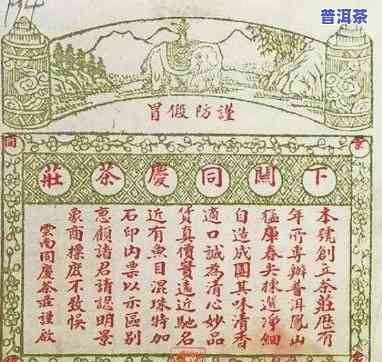 普洱茶
謹防假冒
下關同慶茶莊
本號創立茶莊歷有
年所專辦普洱鳳山
猛庫春尖揀選淨細
自造成團其味清香
適口誠為清心妙品
貨真價實遠近馳名
近有魚目混珠特加
石印內票以示區别
惠顧諸君請認明景
象商標庶不致悮
雲南同慶茶莊謹啟